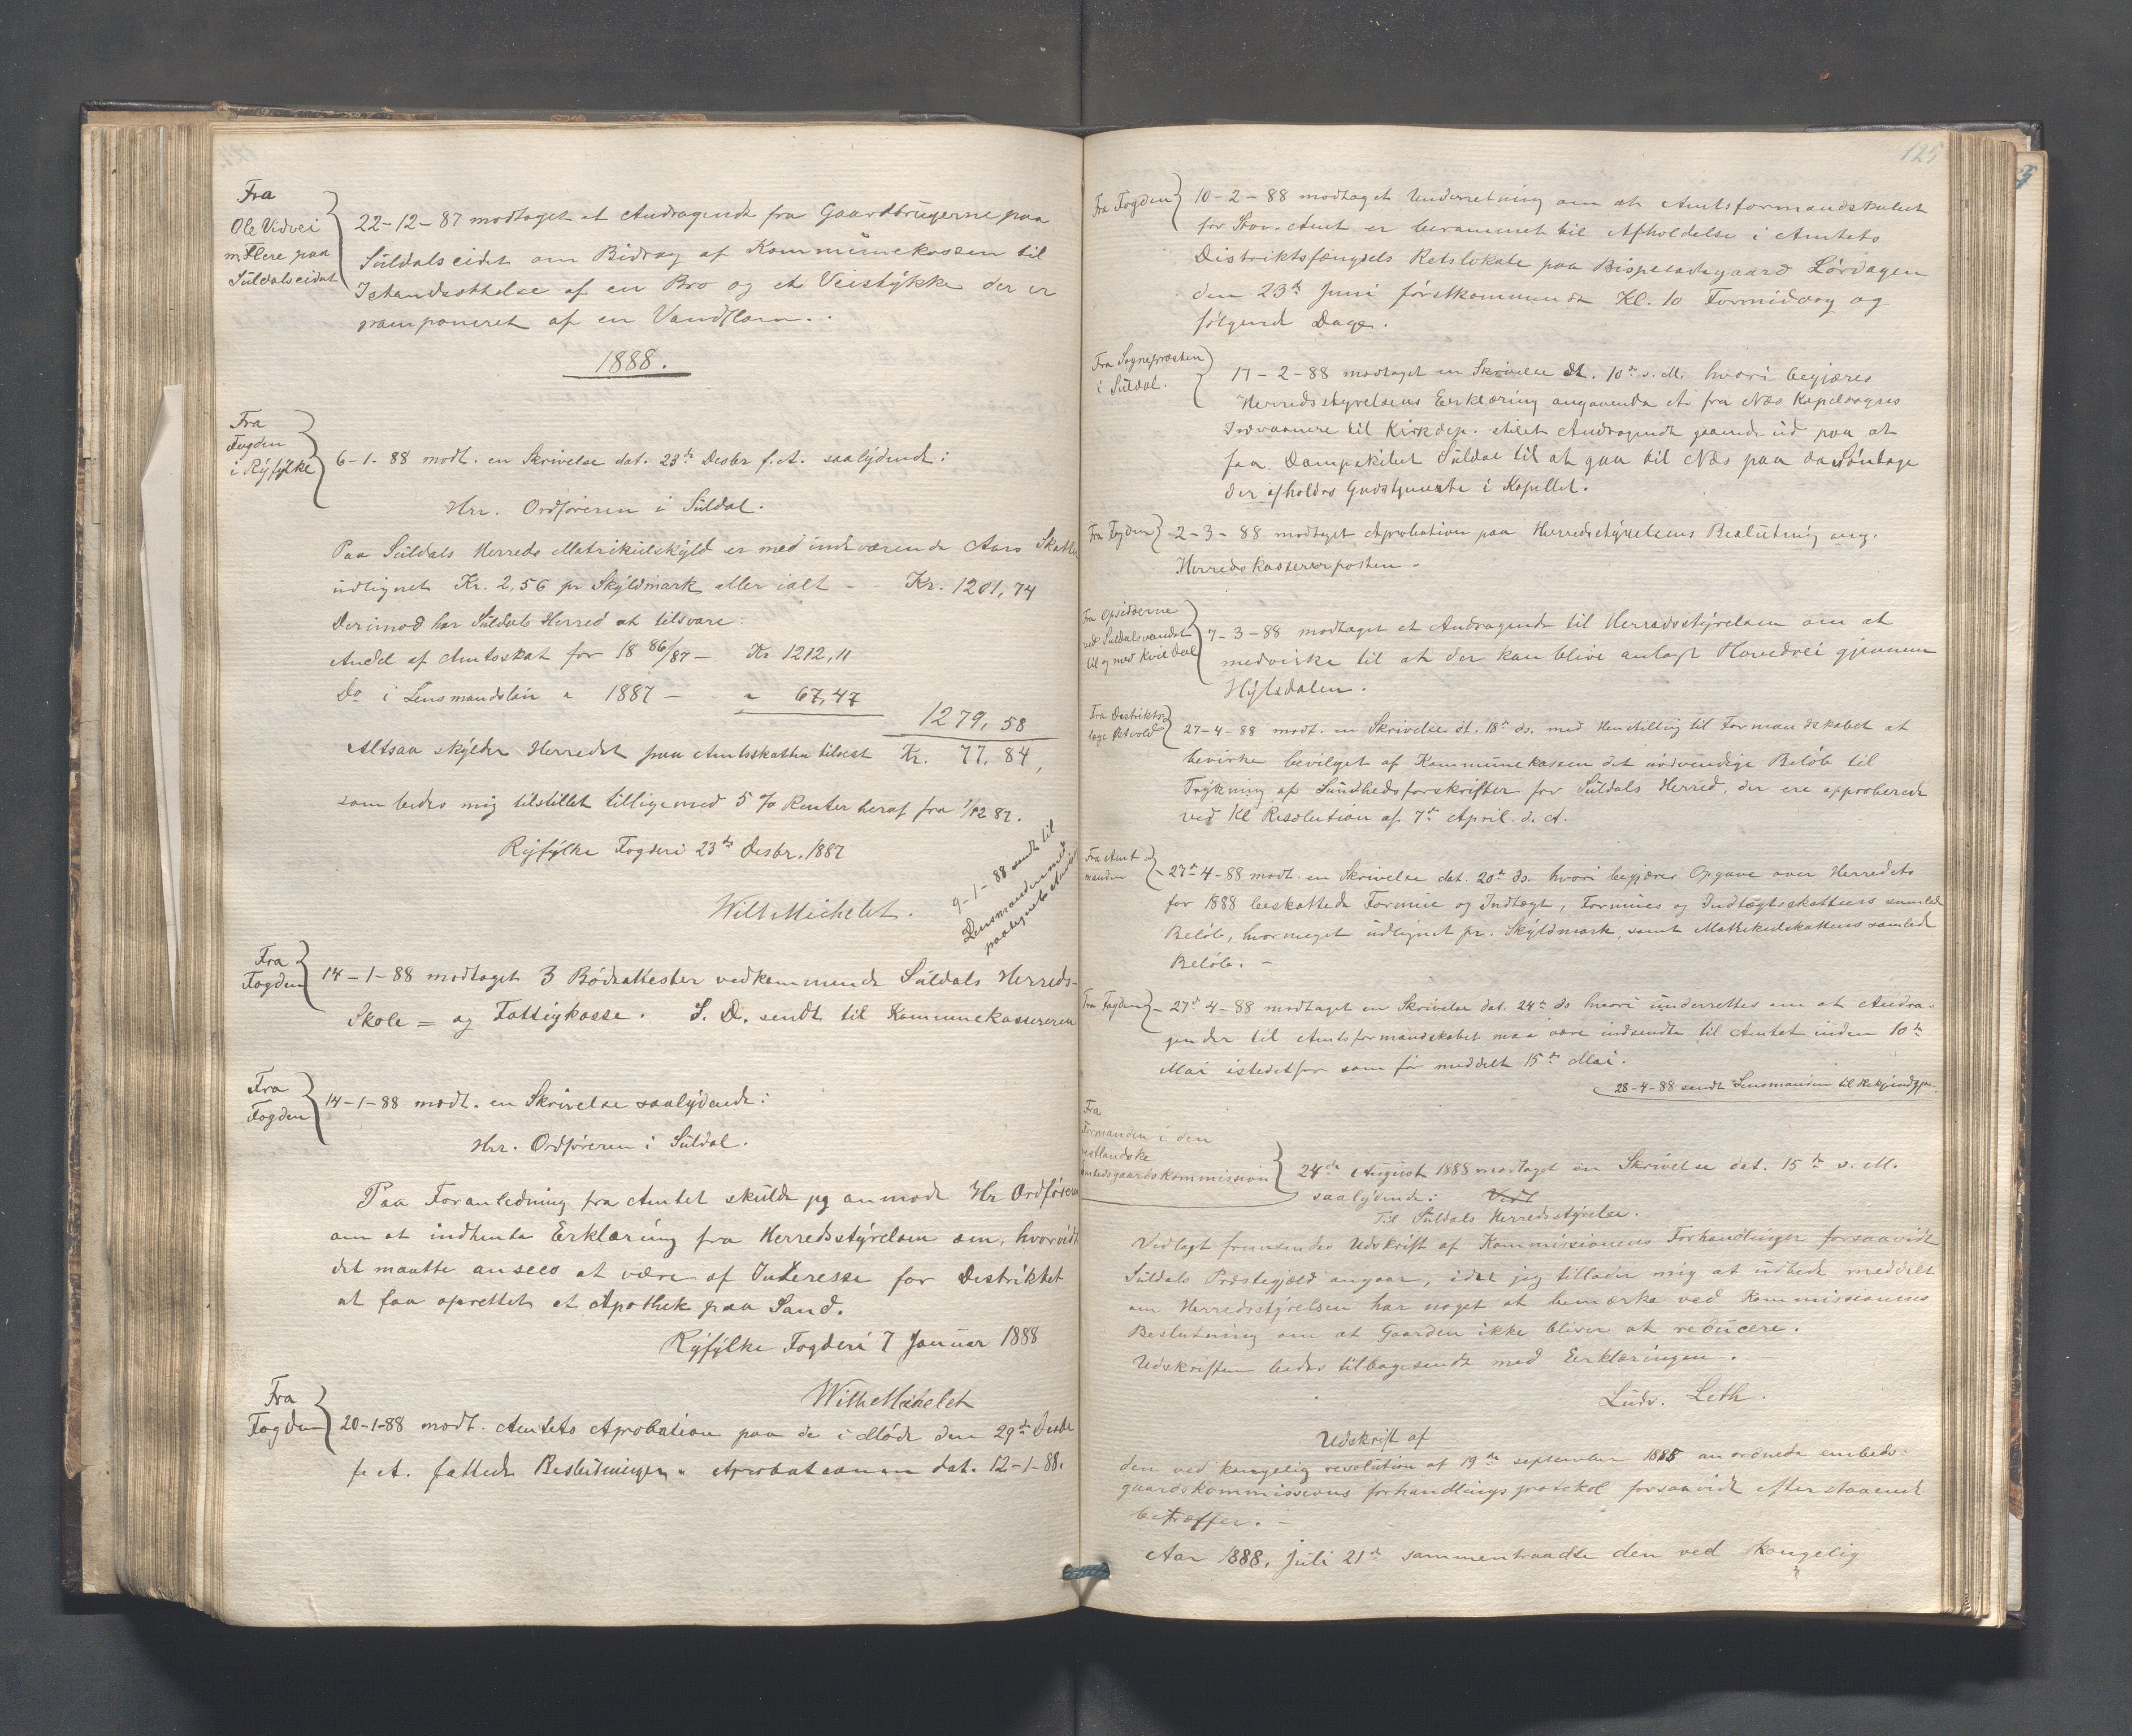 Fra
Ole Vidvei
m. Flere paa
Suldalseidet
22-12-87 modtaget et Andragende fra Gaardbrugerne paa
Suldalseidet om Bidrag af Kommunekassen til
Istandsættelse af en Bro og et Veistykke der er
ramponeret af en Vandflom.
1888.
Fra
Fogden
i Ryfylke
6-1-88 modt. en Skrivelse dat. 23de Desbr f. A. saalydende:
Hrr. Ordføreren i Suldal.
Paa Suldals Herreds Matrikulskyld er med indeværende Aars Skatter
udlignet Kr. 2,56 pr Skyldmark eller ialt - Kr. 1201,74
Derimod har Suldals Herred at tilsvare:
Andel af Amtsskat for 1886/87 - Kr 1212,11
Do i Lensmandsløn " 1887 - " 67,47
1279,58
Altsaa skylder Herredet paa Amtsskatten tilsist Kr. 77,84,
som bedes mig tilstillet tilligemed 5 % Renter heraf fra 1/12 87.
Ryfylke Fogderi 23de Desbr. 1887
Wilh Michelet.
9-1-88 sendt til
Lensmanden med
paategnet
Fra
Fogden
14-1-88 modtaget 3 Bødeattester vedkommende Suldals Herreds-
Skole = og Fattigkasse. S. D. sendt til Kommunekassereren
Fra
Fogden
14-1-88 modt. en Skrivelse saalydende:
Hrr. Ordføreren i Suldal.
Paa Foranledning fra Amtet skulde jeg anmode Hr Ordføreren
om at indhente Erklæring fra Herredsstyrelsen om, hvorvidt
det maatte ansees at være af Interesse for Distriktet
at faa oprettet et Apothek paa Sand.
Ryfylke Fogderi 7 Januar 1888
Wilh Michelet
Fra
Fogden
20-1-88 modt. Amtets Aprobation paa de i Møde den 29de Desbr
f. A. fattede Beslutninger. Aprobationen dat. 12-1-88.
125
Fra Fogden
10-2-88 modtaget Underretning om at Amtsformandskabet
for Stav. Amt er berammet til Afholdelse i Amtets
Distriktsfængsels Retslokale paa Bispeladegaard Lørdagen
den 23de Juni førstkommende Kl. 10 Formiddag og
følgende Dage.
Fra Sognepresten
i Suldal.
17-2-88 modtaget en Skrivelse dt. 10de s. M. hvori begjæres
Herredsstyrelsens Eerklæring angaaende et fra Næs Kapelsogns
Indvaanere til Kirkdep. stilet Andragende gaaende ud paa at
faa Dampskibet Suldal til at gaa til Næs paa de Søndage
der afholdes Gudstjeneste i Kapellet.
Fra Fogden
2-3-88 modtaget Aprobation paa Herredsstyrelsens Beslutning ang.
Herredskassererposten.
Fra Opsidderne
ved Suldalsvandet
til og med Kvildal
7-3-88 modtaget et Andragende til Herredsstyrelsen om at
medvirke til at der kan blive anlagt Hovedvei gjennem
Hylsdalen.
Fra Distrikts-
læge
27-4-88 modt. en Skrivelse dt. 18de ds. med Henstilling til Formandskabet at
bevirke bevilget af Kommunekassen det nødvendige Beløb til
Trykning af Sundhedsforskrifter for Suldals Herred, der ere approberede
ved Kl Resolution af 7de April d. A.
Fra Amt
manden
27de 4-88 modt. en Skrivelse dat. 20de ds. hvori begjæres Opgave over Herredets
for 1888 beskattede Formue og Indtægt, Formues og Indtægtsskattens samlede
Beløb, hvormeget udlignet pr. Skyldmark, samt Matrikulskattens samlede
Beløb. -
Fra Fogden
27de 4-88 modtaget en Skrivelse dat. 24de ds hvori underrettes om at Andra-
gender til Amtsformandskabet maa være indsendte til Amtet inden 10de
Mai istedetfor som før meddelt 15de Mai.
28-4-88 sendt Lensmanden til
Fra
Formanden i den
vestlandske
embedsgaardskommission
24de August 1888 modtaget en Skrivelse dat. 15de s. M.
saalydende: Vedl
Til Suldals Herredsstyrelse.
Vedlagt fremsendes Udskrift af Kommissionens Forhandlinger forsaavidt
Suldals Præstegjæld angaar, idet jeg tillader mig at udbede meddelt
om Herredsstyrelsen har noget at bemærke ved Kommissionens
Beslutning om at Gaarden ikke bliver at reducere.
Udskriften bedes tilbagesendt med Eerklæringen. -
Ludv. Leth.
Udskrift af
den ved kongelig resolution af 19de september 1885 anordnede embeds-
gaardskommissions forhandlings protokol forsaavidt efterstaaende
betræffer. -
Aar 1888, juli 21de sammentraadte den ved kongelig